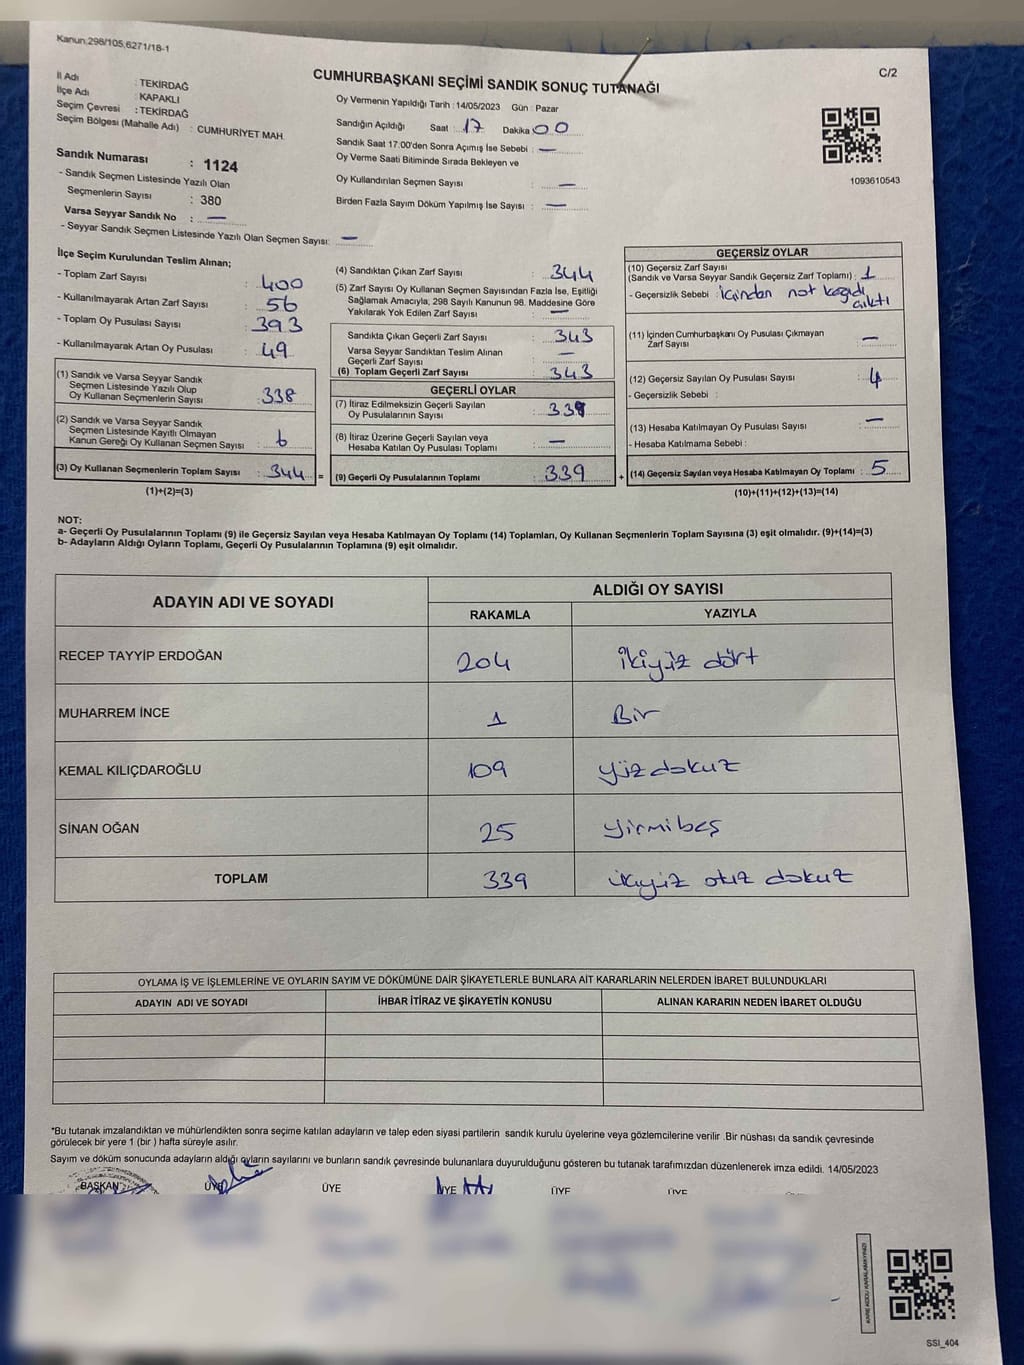 Kanun:298/105,6271/18-1
CUMHURBAŞKANI SEÇİMİ SANDIK SONUÇ TUTANAĞI
C/2
İl Adı : TEKİRDAĞ
İlçe Adı : KAPAKLI
Seçim Çevresi : TEKİRDAĞ
Seçim Bölgesi (Mahalle Adı) : CUMHURİYET MAH.
Sandık Numarası : 1124
- Sandık Seçmen Listesinde Yazılı Olan
Seçmenlerin Sayısı : 380
Varsa Seyyar Sandık No : —
- Seyyar Sandık Seçmen Listesinde Yazılı Olan Seçmen Sayısı: —
Oy Vermenin Yapıldığı Tarih : 14/05/2023 Gün : Pazar
Sandığın Açıldığı Saat : 17 Dakika : 00
Sandık Saat 17:00'den Sonra Açımış İse Sebebi : —
Oy Verme Saati Bitiminde Sırada Bekleyen ve
Oy Kullandırılan Seçmen Sayısı : —
Birden Fazla Sayım Döküm Yapılmış İse Sayısı : —
1093610543
İlçe Seçim Kurulundan Teslim Alınan;
- Toplam Zarf Sayısı : 400
- Kullanılmayarak Artan Zarf Sayısı : 56
- Toplam Oy Pusulası Sayısı : 393
- Kullanılmayarak Artan Oy Pusulası : 49
(1) Sandık ve Varsa Seyyar Sandık
Seçmen Listesinde Yazılı Olup
Oy Kullanan Seçmenlerin Sayısı : 338
(2) Sandık ve Varsa Seyyar Sandık
Seçmen Listesinde Kayıtlı Olmayan
Kanun Gereği Oy Kullanan Seçmen Sayısı : 6
(3) Oy Kullanan Seçmenlerin Toplam Sayısı : 344 =
(1)+(2)=(3)
(4) Sandıktan Çıkan Zarf Sayısı : 344
(5) Zarf Sayısı Oy Kullanan Seçmen Sayısından Fazla İse, Eşitliği
Sağlamak Amacıyla; 298 Sayılı Kanunun 98. Maddesine Göre
Yakılarak Yok Edilen Zarf Sayısı : —
Sandıkta Çıkan Geçerli Zarf Sayısı : 343
Varsa Seyyar Sandıktan Teslim Alınan
Geçerli Zarf Sayısı : —
(6) Toplam Geçerli Zarf Sayısı : 343
GEÇERLİ OYLAR
(7) İtiraz Edilmeksizin Geçerli Sayılan
Oy Pusulalarının Sayısı : 339
(8) İtiraz Üzerine Geçerli Sayılan veya
Hesaba Katılan Oy Pusulası Toplamı : —
(9) Geçerli Oy Pusulalarının Toplamı : 339 +
GEÇERSİZ OYLAR
(10) Geçersiz Zarf Sayısı
(Sandık ve Varsa Seyyar Sandık Geçersiz Zarf Toplamı) : 1
- Geçersizlik Sebebi : İçinden not kağıdı
çıktı
(11) İçinden Cumhurbaşkanı Oy Pusulası Çıkmayan
Zarf Sayısı : —
(12) Geçersiz Sayılan Oy Pusulası Sayısı : 4
- Geçersizlik Sebebi :
(13) Hesaba Katılmayan Oy Pusulası Sayısı : —
- Hesaba Katılmama Sebebi :
(14) Geçersiz Sayılan veya Hesaba Katılmayan Oy Toplamı : 5
(10)+(11)+(12)+(13)=(14)
NOT:
a- Geçerli Oy Pusulalarının Toplamı (9) ile Geçersiz Sayılan veya Hesaba Katılmayan Oy Toplamı (14) Toplamları, Oy Kullanan Seçmenlerin Toplam Sayısına (3) eşit olmalıdır. (9)+(14)=(3)
b- Adayların Aldığı Oyların Toplamı, Geçerli Oy Pusulalarının Toplamına (9) eşit olmalıdır.
ADAYIN ADI VE SOYADI
ALDIĞI OY SAYISI
RAKAMLA YAZIYLA
RECEP TAYYİP ERDOĞAN 204 İkiyüz dört
MUHARREM İNCE 1 Bir
KEMAL KILIÇDAROĞLU 109 Yüzdokuz
SİNAN OĞAN 25 Yirmibeş
TOPLAM 339 üçyüz otuz dokuz
OYLAMA İŞ VE İŞLEMLERİNE VE OYLARIN SAYIM VE DÖKÜMÜNE DAİR ŞİKAYETLERLE BUNLARA AİT KARARLARIN NELERDEN İBARET BULUNDUKLARI
ADAYIN ADI VE SOYADI İHBAR İTİRAZ VE ŞİKAYETİN KONUSU ALINAN KARARIN NEDEN İBARET OLDUĞU
*Bu tutanak imzalandıktan ve mühürlendikten sonra seçime katılan adayların ve talep eden siyasi partilerin sandık kurulu üyelerine veya gözlemcilerine verilir .Bir nüshası da sandık çevresinde
görülecek bir yere 1 (bir ) hafta süreyle asılır.
Sayım ve döküm sonucunda adayların aldığı oyların sayılarını ve bunların sandık çevresinde bulunanlara duyurulduğunu gösteren bu tutanak tarafımızdan düzenlenerek imza edildi. 14/05/2023
BAŞKAN ÜYE ÜYE ÜYE ÜYE ÜYE
SSI_404